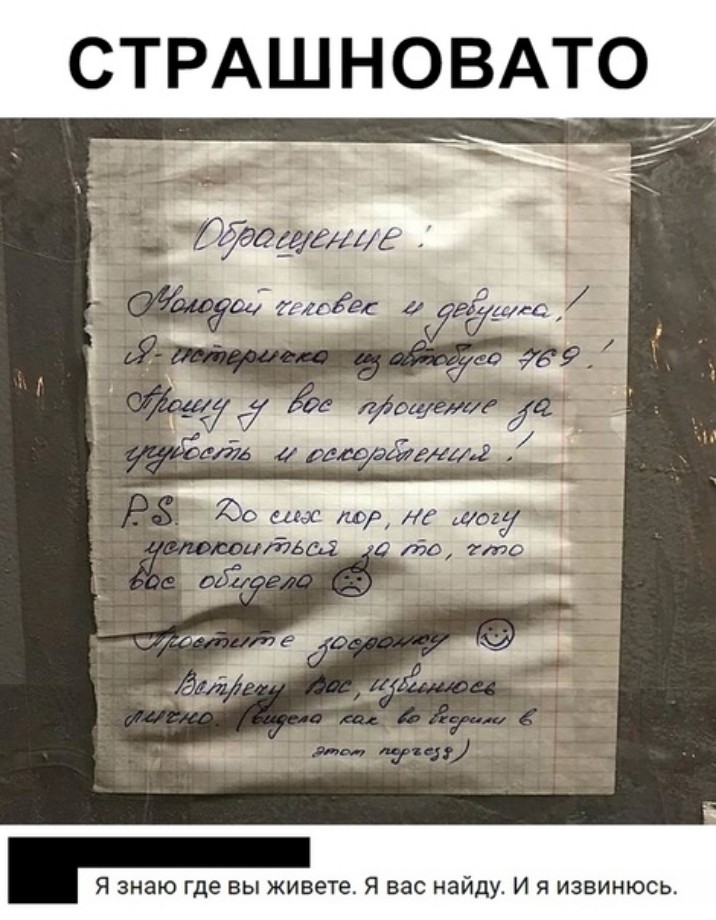 СТРАШНОВАТО
Обращение!
Молодой человек и девушка!
Я - истеричка из автобуса 769!
Прошу у вас прощение за
грубость и оскорбления!
P.S. До сих пор, не могу
успокоиться за то, что
вас обидела
Простите засранку
Встречу Вас, извинюсь
лично. (видела как во входили в
этот подъезд)
Я знаю где вы живете. Я вас найду. И я извинюсь.